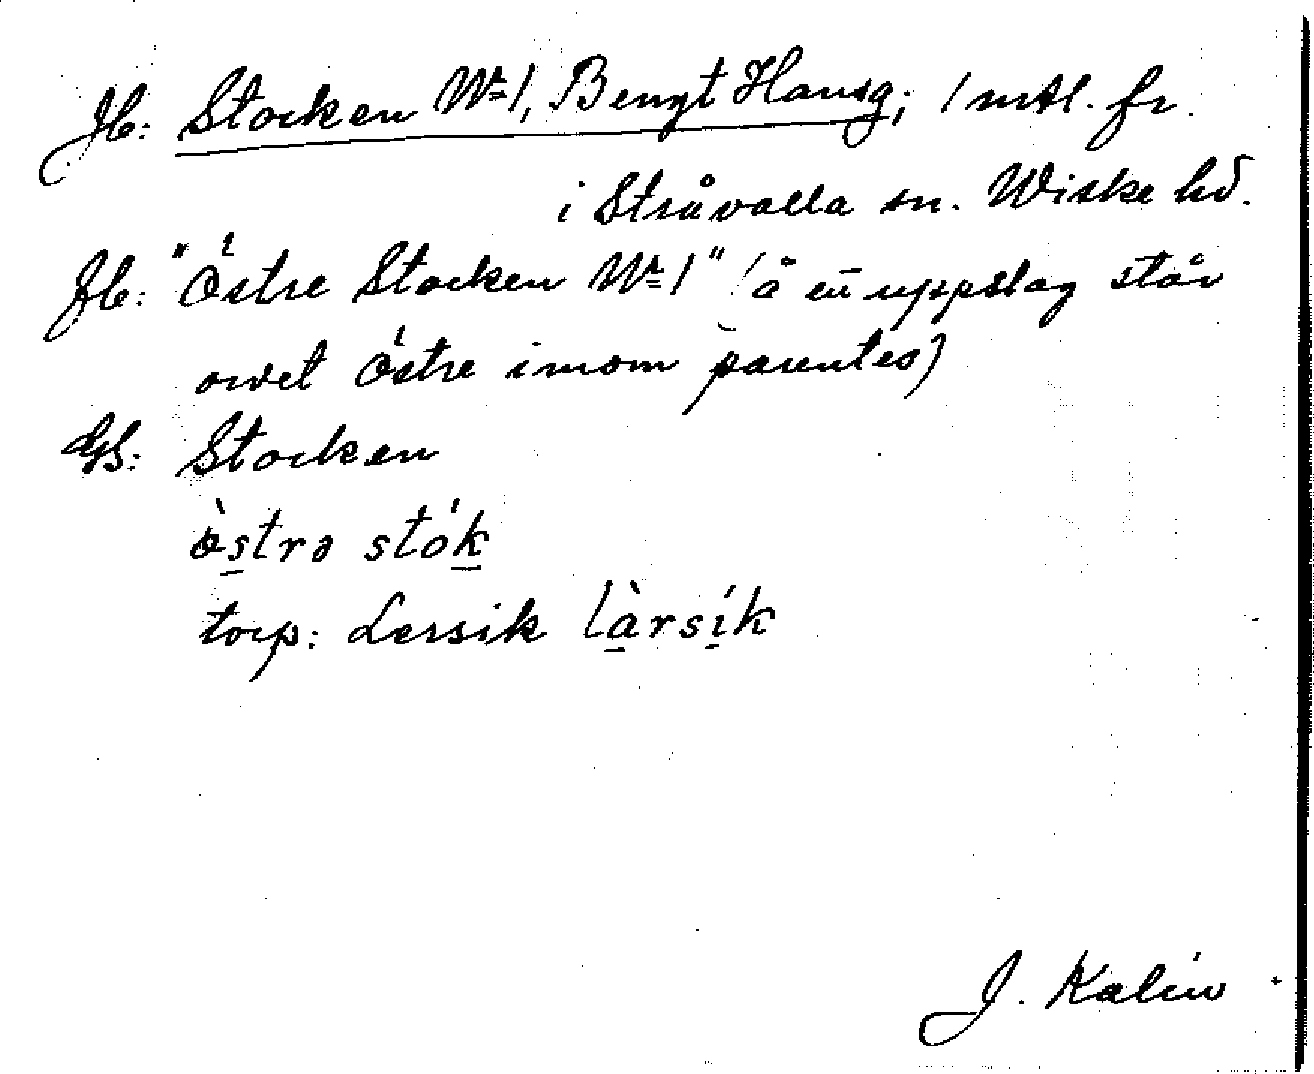 Jb: Stocken Nº 1, Bengt Hansg; 1 mtl. fr.
i Stråvalla sn. Wiske hd.
Jb: "Östre Stocken Nº 1" (å en uppslag står
ordet Östre inom parentes)
GS: Stocken
östrə stók
torp: Lersik làrsík
J. Kalén